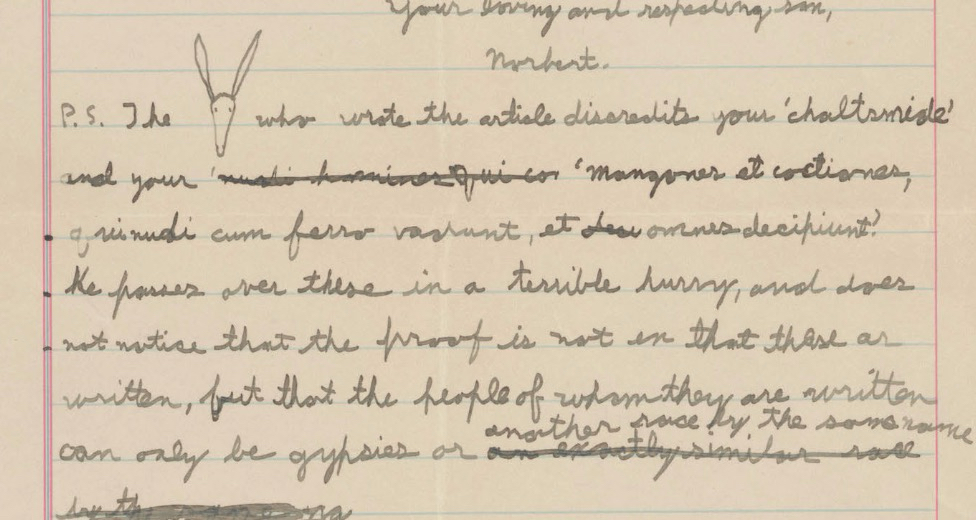 Your loving and respecting son,
Norbert.
P.S. The who wrote the article discredits your 'chaltsmide'
and your 'nudi homines qui co 'Mangones et coctiones,
qui nudi cum ferro vadunt, et omnes decipiunt.'
He passes over these in a terrible hurry, and does
not notice that the proof is not in that these ar
written, but that the people of whom they are written
another race by the same name
can only be gypsies or an exactly similar race
by the